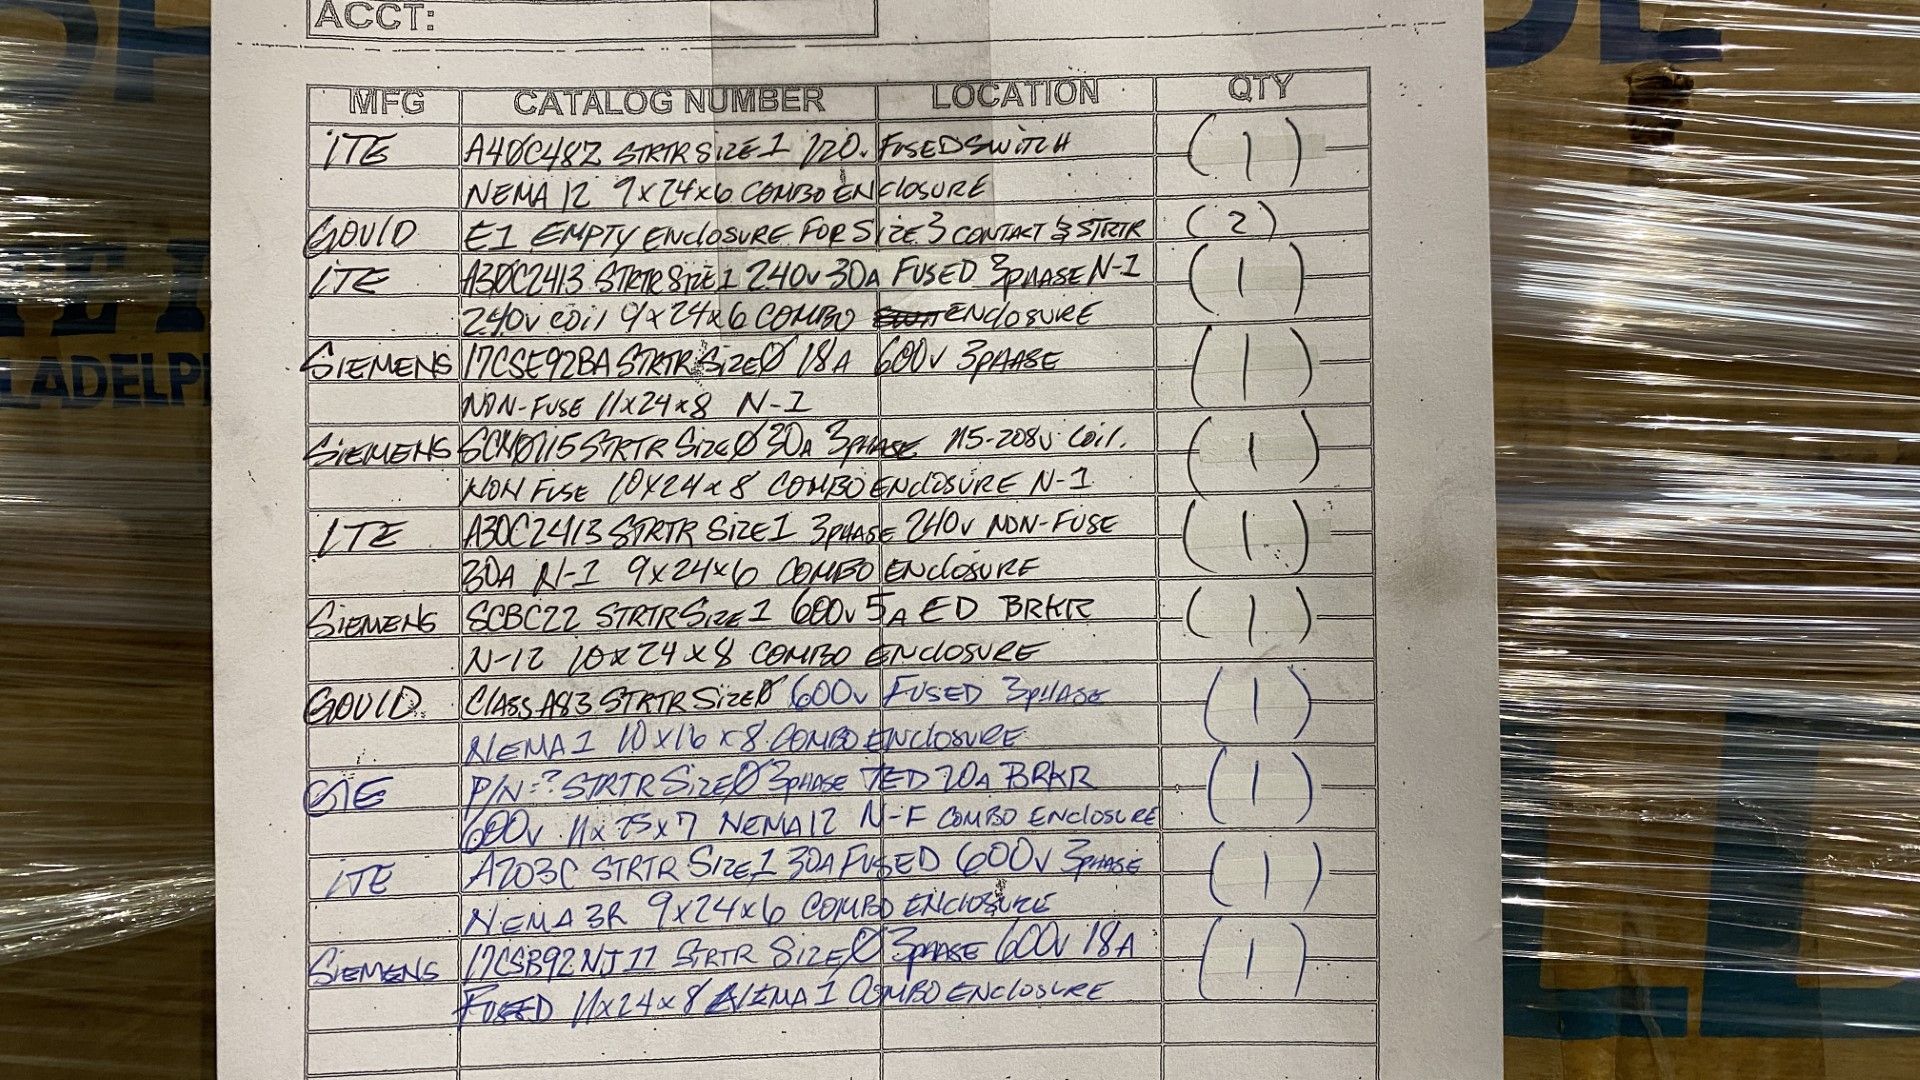 ACCT:
MFG CATALOG NUMBER LOCATION QTY
ITE A40C48Z STRTR SIZE 1 120v FUSED SWITCH (1)
NEMA 12 9x24x6 COMBO ENCLOSURE
GOULD E1 EMPTY ENCLOSURE FOR SIZE 3 CONTACT & STRTR (2)
ITE A30C2413 STRTR SIZE 1 240v 30A FUSED 3PHASE N-1 (1)
240v coil 9x24x6 COMBO ENCLOSURE
SIEMENS 17CSE92BA STRTR SIZE Ø 18A 600v 3PHASE (1)
NON-FUSE 11x24x8 N-1
SIEMENS STRTR SIZE Ø 30A 3PHASE 115-208v Coil. (1)
NON FUSE 10x24x8 COMBO ENCLOSURE N-1
ITE A30C2413 STRTR SIZE 1 3PHASE 240v NON-FUSE (1)
30A N-1 9x24x6 COMBO ENCLOSURE
SIEMENS SCBC22 STRTR SIZE 1 600v 5A ED BRKR (1)
N-12 10x24x8 COMBO ENCLOSURE
GOULD CLASS A83 STRTR SIZE Ø 600v FUSED 3PHASE (1)
NEMA 1 10x16x8 COMBO ENCLOSURE
GE P/N=? STRTR SIZE Ø 3PHASE TED 20A BRKR (1)
600v 11x25x7 NEMA 12 N-F COMBO ENCLOSURE
ITE A203C STRTR SIZE 1 30A FUSED 600v 3PHASE (1)
NEMA 3R 9x24x6 COMBO ENCLOSURE
SIEMENS 17CSB92NJ11 STRTR SIZE Ø 3PHASE 600v 18A (1)
FUSED 11x24x8 NEMA 1 COMBO ENCLOSURE